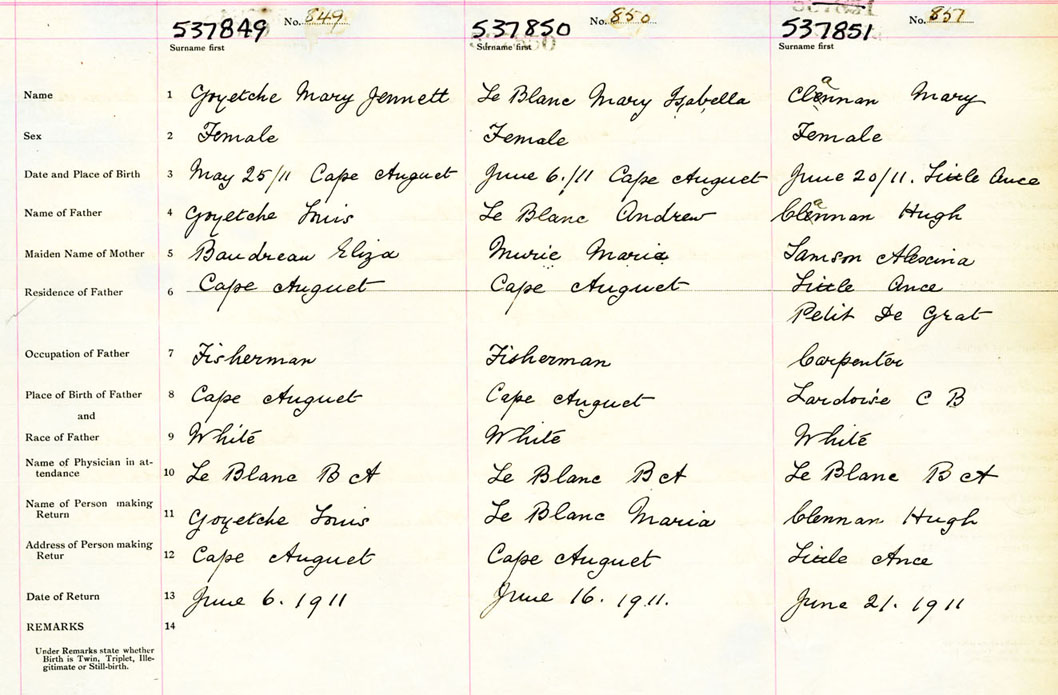 537849 No. 849 537850 No. 850 537851 No. 851
Surname first Surname first Surname first
Name 1 Goyetche Mary Jennett Le Blanc Mary Isabella Clennan Mary
Sex 2 Female Female Female
Date and Place of Birth 3 May 25/11 Cape Auguet June 6./11 Cape Auguet June 20/11. Little Ance
Name of Father 4 Goyetche Louis Le Blanc Andrew Clennan Hugh
Maiden Name of Mother 5 Baudreau Eliza Murie Maria Samson Alexina
Residence of Father 6 Cape Auguet Cape Auguet Little Ance
Petit De Grat
Occupation of Father 7 Fisherman Fisherman Carpenter
Place of Birth of Father 8 Cape Auguet Cape Auguet Lardoise C B
and
Race of Father 9 White White White
Name of Physician in at-
tendance 10 Le Blanc B A Le Blanc B A Le Blanc B A
Name of Person making
Return 11 Goyetche Louis Le Blanc Maria Clennan Hugh
Address of Person making
Retur 12 Cape Auguet Cape Auguet Little Ance
Date of Return 13 June 6. 1911 June 16. 1911. June 21. 1911
REMARKS 14
Under Remarks state whether
Birth is Twin, Triplet, Ille-
gitimate or Still-birth.